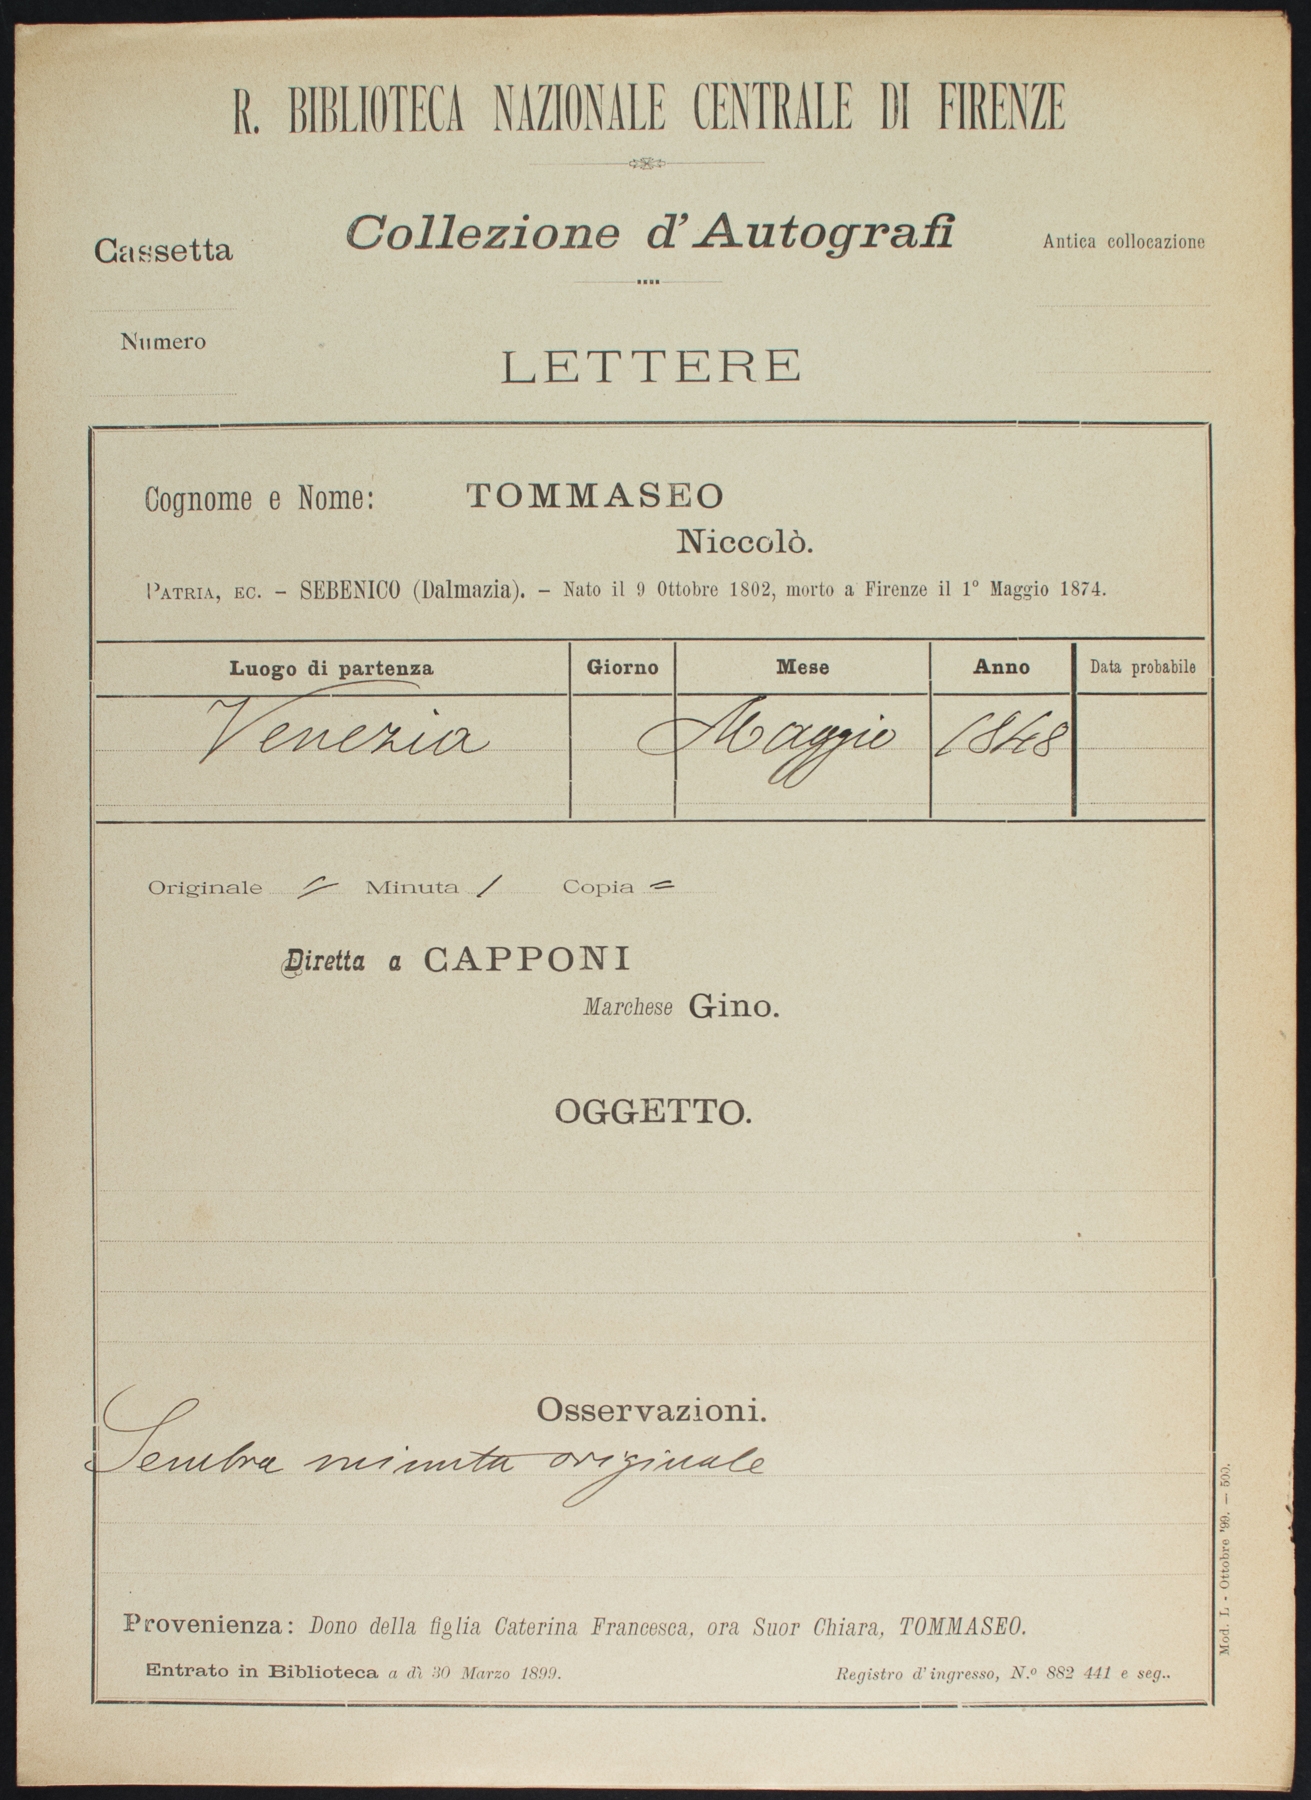 R. BIBLIOTECA NAZIONALE CENTRALE DI FIRENZE
Collezione d'Autografi
Cassetta
Antica collocazione
Numero
LETTERE
Cognome e Nome: TOMMASEO
Niccolò.
PATRIA, EC. – SEBENICO (Dalmazia). – Nato il 9 Ottobre 1802, morto a Firenze il 1° Maggio 1874.
Luogo di partenza Giorno Mese Anno Data probabile
Venezia Maggio 1848
Originale = Minuta / Copia =
Diretta a CAPPONI
Marchese Gino.
OGGETTO.
Osservazioni.
Sembra minuta originale
Provenienza: Dono della figlia Caterina Francesca, ora Suor Chiara, TOMMASEO.
Entrato in Biblioteca a dì 30 Marzo 1899. Registro d'ingresso, N.º 882 441 e seg..
Mod. L - Ottobre '99. — 500.